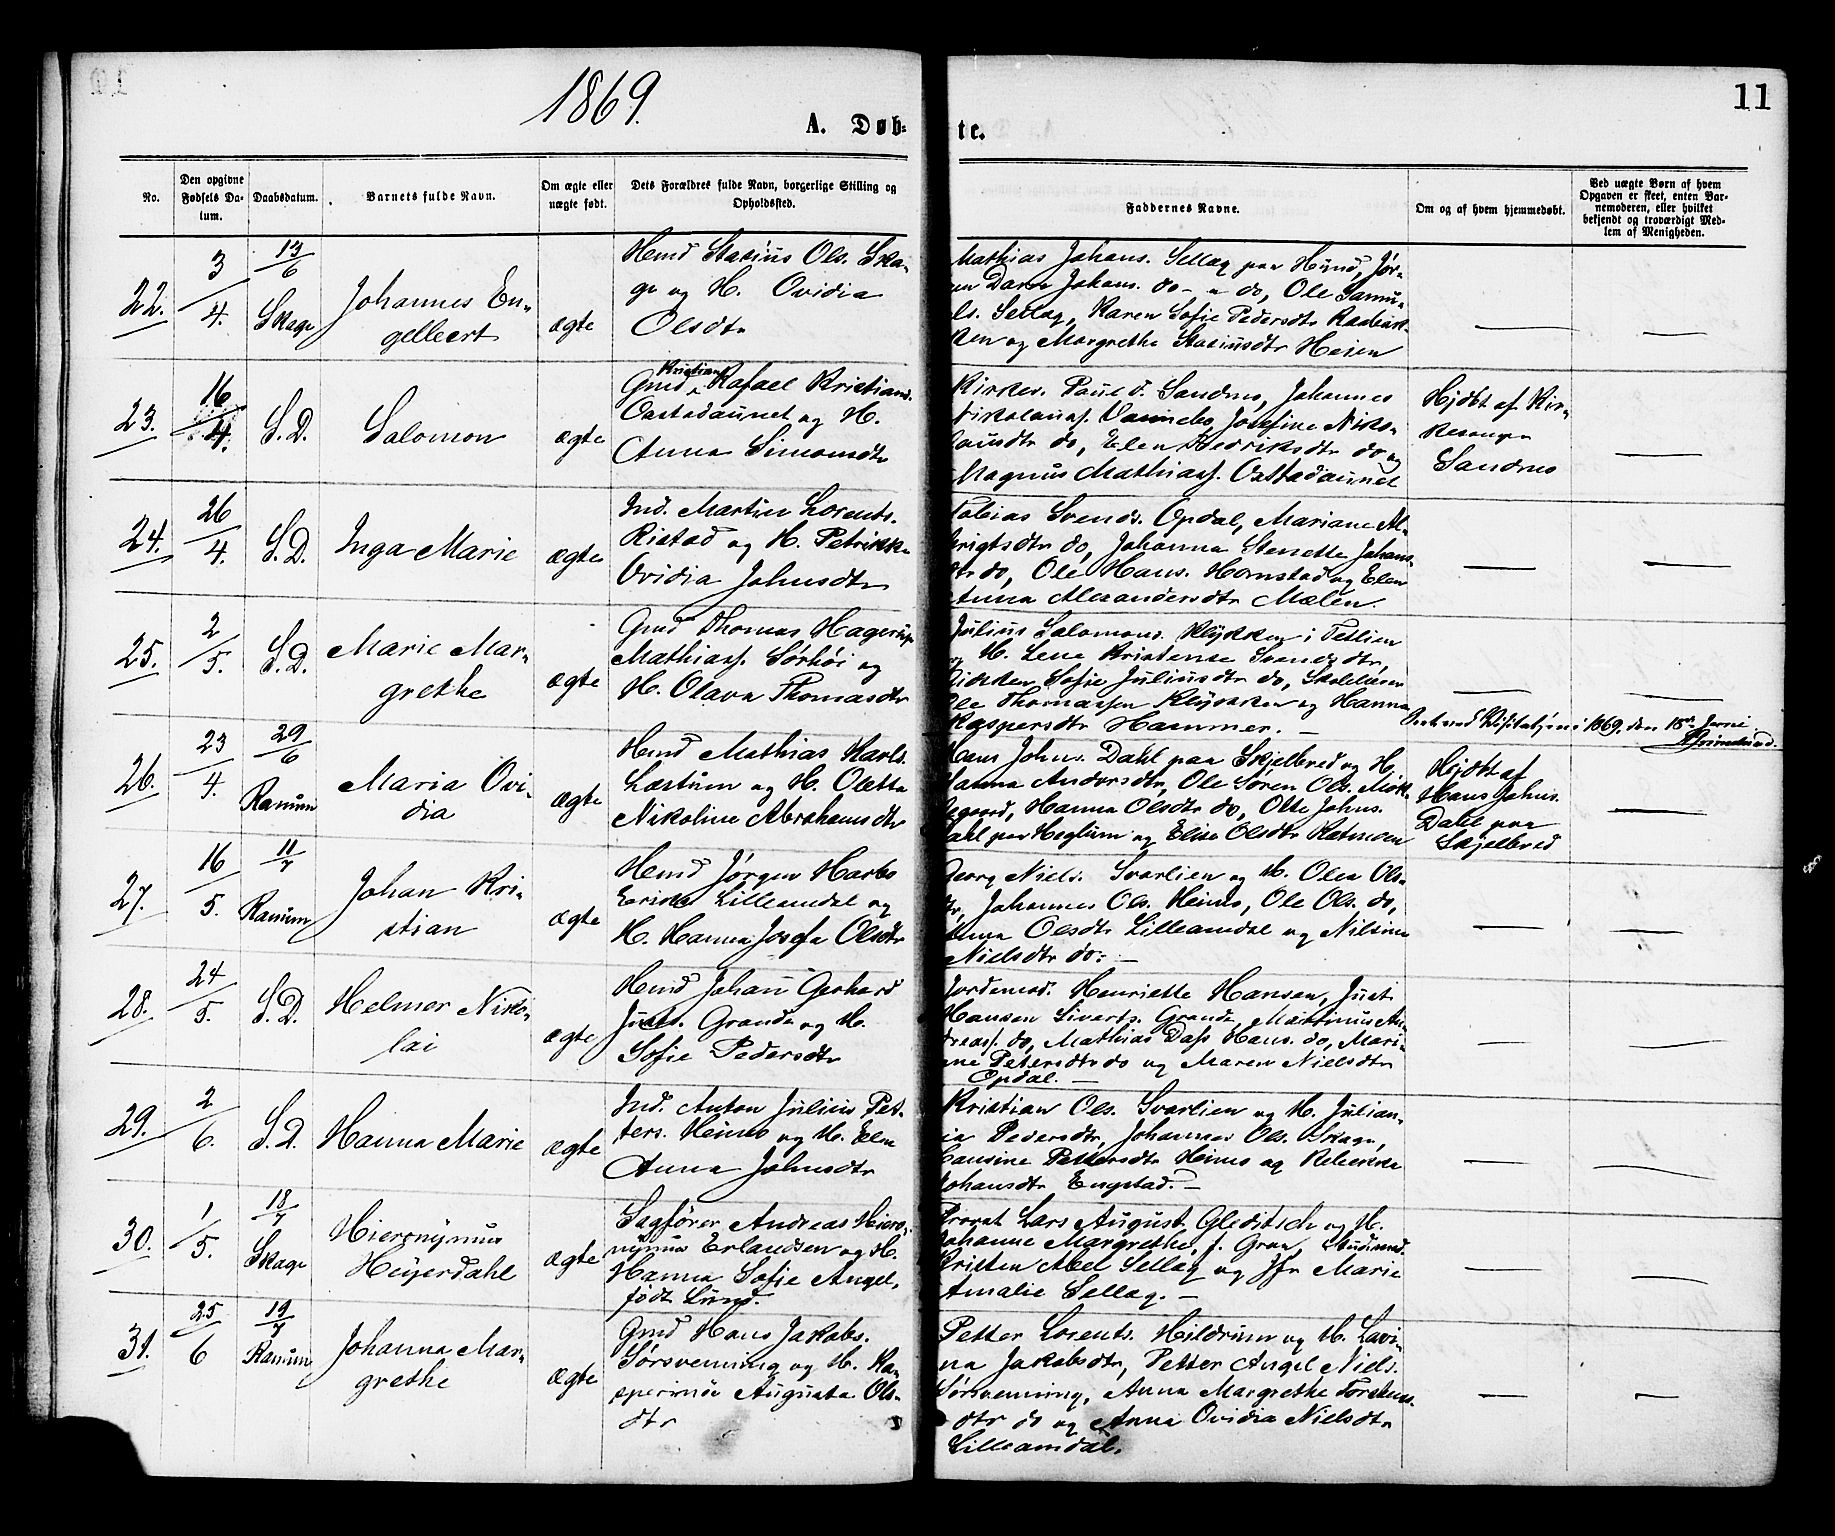 1869.
11
A. Døb-
te.
No.
Den opgivne Fødsels Da-tum.
Daabsdatum.
Barnets fulde Navn.
Om ægte eller uægte født.
Dets Forældres fulde Navn, borgerlige Stilling og Opholdssted.
Faddernes Navne.
Om og af hvem hjemmedøbt.
Ved uægte Børn af hvem Opgaven er skeet, enten Bar-nemoderen, eller hvilket bekjendt og troværdigt Med-lem af Menigheden.
22.
3/4.
13/6
Skage
Johannes En-
gelleert
ægte
Hmd Stasius Ols. Ska-
ge og H. Ovidia
Olsdtr
Mathias Johans. Sellæg paa Hund, Jør-
Johans. do - do, Ole Samu-
ls. Sellæg, Karen Sofie Pedersdtr
ken og Margrethe Stasiusdtr Heien
23.
16/4.
S.D.
Salomon
ægte
Kristian
Gmd Rafael Kristians.
Oastadaunet og H.
Anna Simonsdtr
Kirkes. Paul d. Sandnes, Johannes
Nikolaus. Josefine Niko-
lausdtr do, Elen Hedriksdtr do og
Magnus Mathiass. Oastadaunet
Hjdbt af Kir-
kesanger
Sandnes
24.
26/4.
S.D.
Inga Marie
ægte
Ind. Martin Lorents.
Ristad og H. Petrikke
Ovidia Johnsdtr
Tobias Svends. Opdal, Mariane Al-
brigtsdtr do, Johanna Stenette Johans
dtr do, Ole Hans. Homstad og Elen
Anna Alexandersdtr Mælen.
25.
2/5.
S.D.
Marie Mar-
grethe
ægte
Gmd Thomas Hagerup
Mathiass. Sørhøi og
H. Olava Thomasdtr
Julius Salomons. Klykken i Tetlien
og H. Lene Kristense Svendsdtr,
Rikken Sofie Juliusdtr do, Skolelærer
Ole Thomassen Klykken og Hanna
Kaspersdtr Hammer. -
1869. den 15de Juni
Grimelund.
26.
23/4.
29/6
Ranum
Maria Ovi-
dia
ægte
Hmd Mathias Karls.
Læstum og H. Oletta
Nikoline Abrahamsdtr
Hans Johns. Dahl paa Skjelbred og H.
Hanna Andersdtr, Ole Søren Ols. Møk-
legaard, Hanna Olsdtr do, Otte Johns.
Dahl paa Heglum og Elise Olsdtr
Hjdbt af
Hans Johns.
Dahl paa
Skjelbred
27.
16/5.
11/7
Ranum
Johan Kri-
stian
ægte
Hmd Jørgen Harbo
Eriks. Lilleamdal og
H. Hanna Josefa Olsdtr
Georg Niels. Svarlien og H. Olea Ols-
dtr, Johannes Ols. Heimo, Ole Ols. do,
Anna Olsdtr Lilleamdal og Nilsine
Nielsdtr do. -
28.
24/5.
S.D.
Helmer Niko-
lai
ægte
Hmd Johan Gerhard
Juels. Grande og H.
Sofie Pedersdtr
Jordemod. Henriette Hansen, Just
Hansen Siverts. Grande, Martinus An-
dreass. do, Mathias Dass Hans. do, Mari-
ane Petersdtr do og Maren Nielsdtr
Opdal. -
29.
2/6.
S.D.
Hanna Marie
ægte
Ind. Anton Julius Pet-
ters. Heimo og H. Elen
Anna Johnsdtr
Kristian Ols. Svarlien og H. Julian-
na Pedersdtr, Johannes Ols. Skage,
Hansine Pettersdtr Heimo og Rebekka
Johansdtr Engstad. -
30.
1/5.
18/7
Skage
Hieronymus
Heyerdahl
ægte
Sagfører Andreas Hiero-
nymus Erlandsen og H.
Hanna Sofie Angel,
født Lund.
Provst Lars August Gleditsch og H.
Johanne Margrethe, f. Gran, Studiosus
Kristen Abel Sellæg og Jfr Marie
Amalie Sellæg. -
31.
25/6
19/7
Ranum
Johanna Mar-
grethe
ægte
Gmd Hans Jakobs.
Sørsvenning og H. Ka-
sperinde Augusta Ols-
dtr
Petter Lorents. Hildrum og H. Lavi-
na Jakobsdtr, Petter Angel Niels.
Sørsvenning, Anna Margrethe Torstens
dtr do og Anna Ovidia Nielsdtr
Lilleamdal.